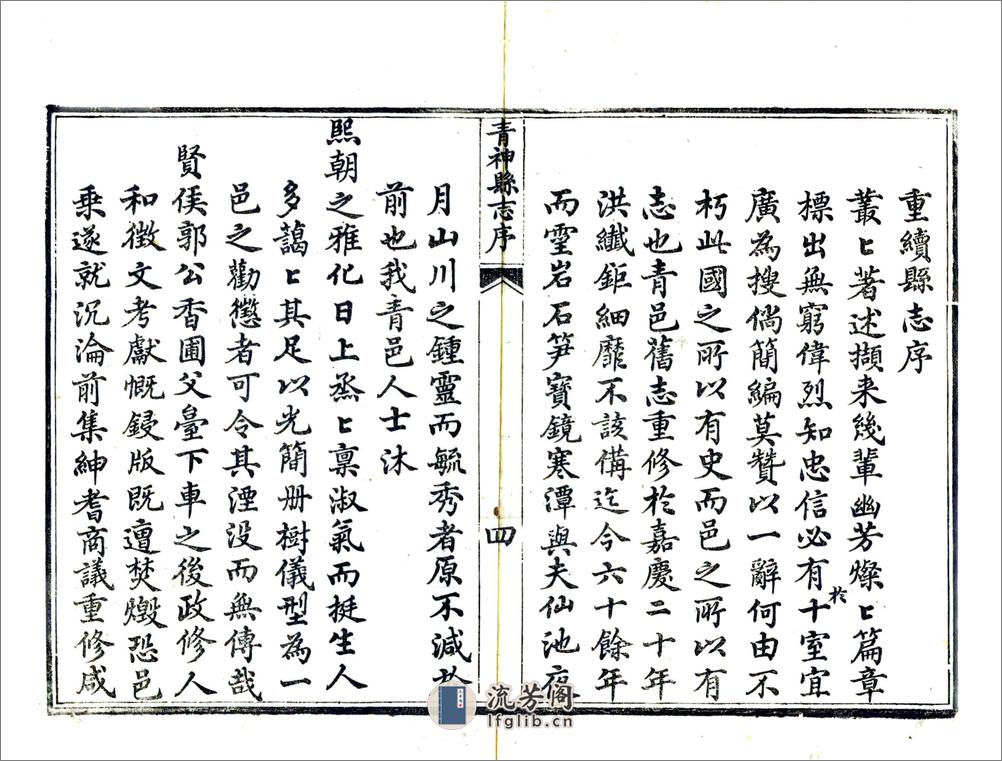 重續縣志序
叢〻著述擷来幾輩幽芳燦〻篇章
標出無窮偉烈知忠信必有於十室宜
廣為搜倘簡編莫贊以一辭何由不
朽此國之所以有史而邑之所以有
志也青邑舊志重修於嘉慶二十年
洪纖鉅細靡不該備迄今六十餘年
而靈岩石笋寶鏡寒潭與夫仙池
青神縣志序
四
月山川之鍾靈而毓秀者原不減於
前也我青邑人士沐
熙朝之雅化日上烝〻稟淑氣而挺生人
多藹〻其足以光簡册樹儀型為一
邑之勸懲者可令其湮没而無傳哉
賢侯郭公香圃父臺下車之後政修人
和徵文考獻慨鋟版既遭焚燬恐邑
乘遂就沉淪前集紳耆商議重修咸
流芳阁
lfglib.cn